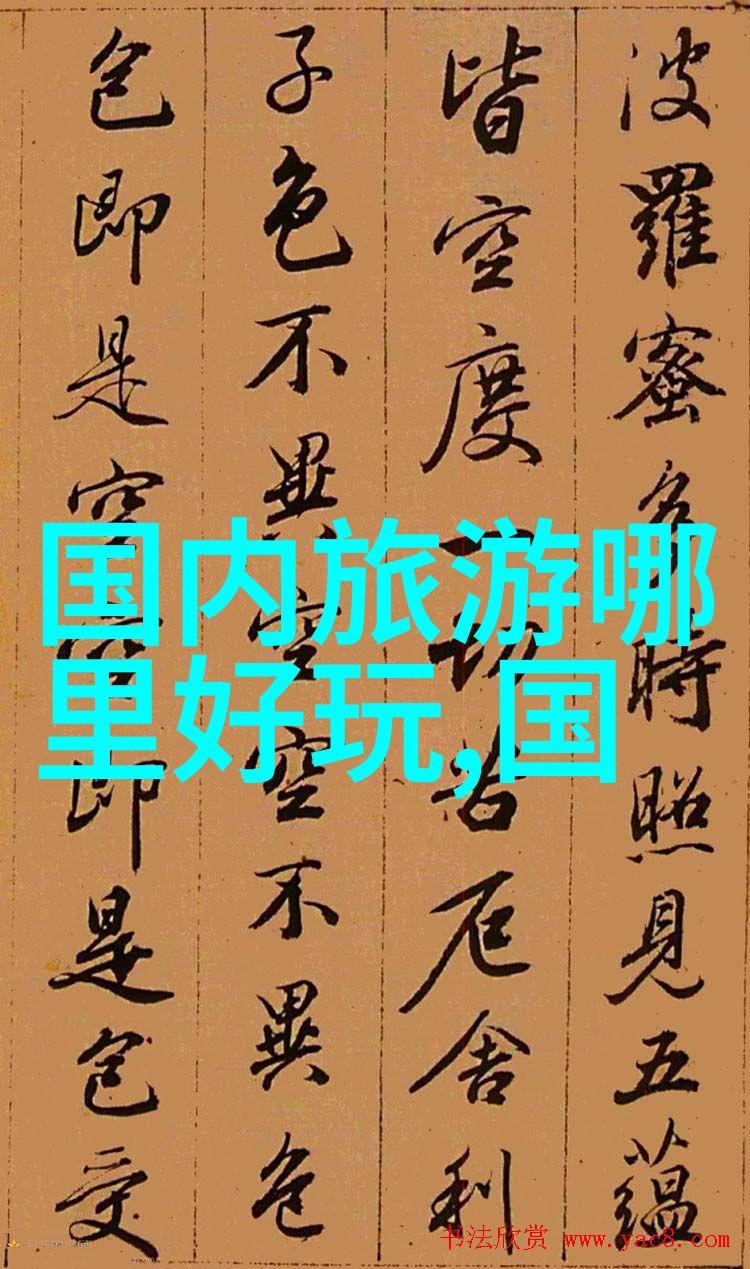 波羅蜜多時照見五蘊
皆空度一切苦厄舍利
子色不異空空不異色
色即是空空即是色受
国内旅游哪
里好玩,国
书法欣赏 www.yac8.com